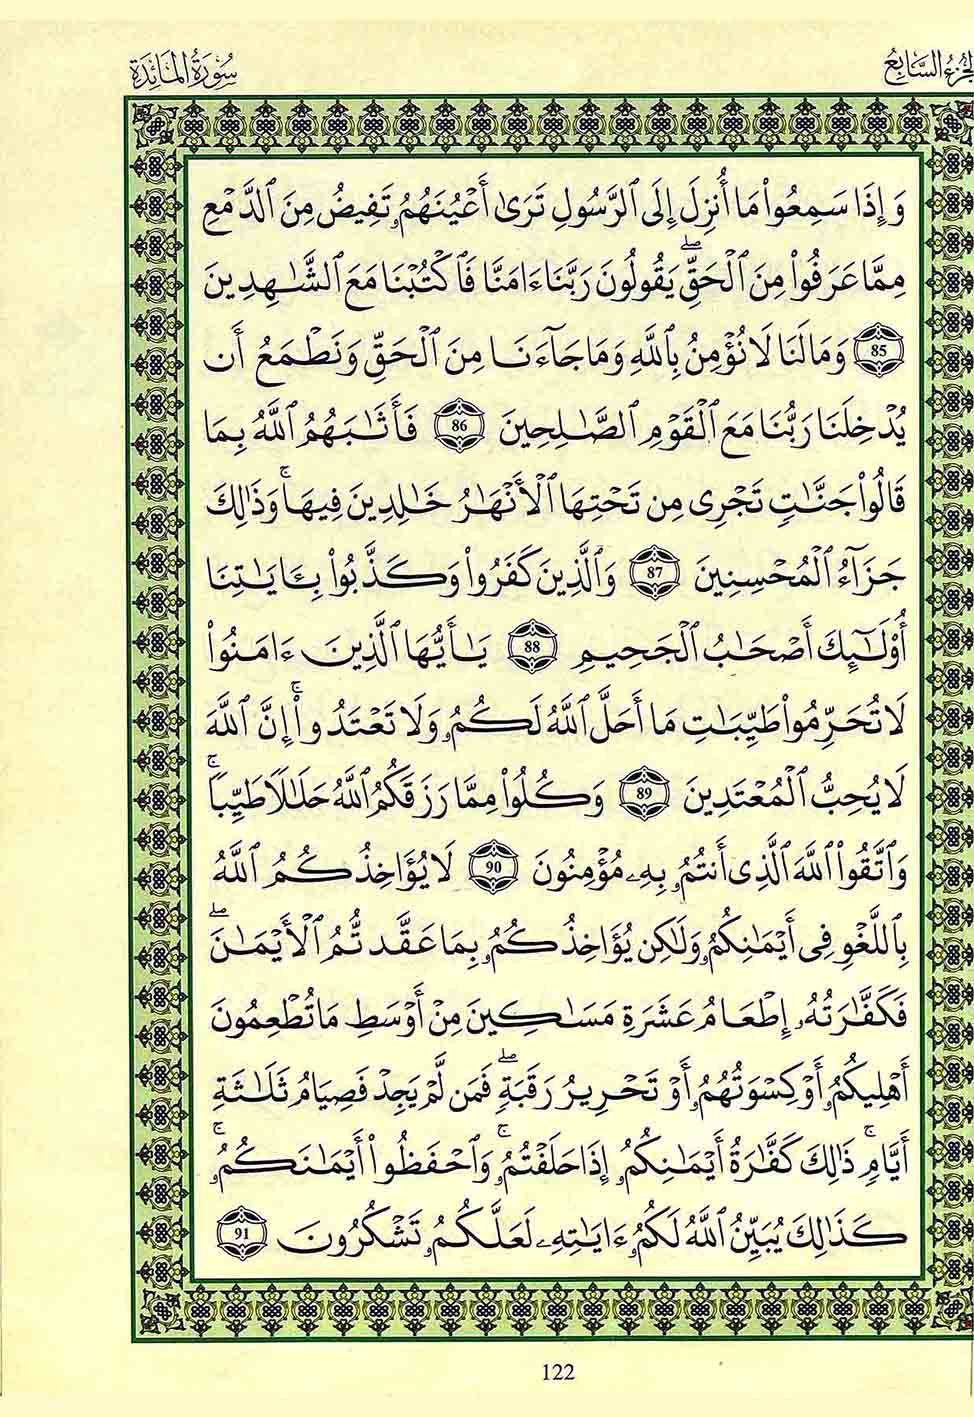 الجزء السابع
سُورَةُ المَائِدَة
وَإِذَا سَمِعُواْ مَا أُنزِلَ إِلَى ٱلرَّسُولِ تَرَىٰ أَعْيُنَهُمُۥ تَفِيضُ مِنَ ٱلدَّمْعِ
مِمَّا عَرَفُواْ مِنَ ٱلْحَقِّۖ يَقُولُونَ رَبَّنَا ءَامَنَّا فَٱكْتُبْنَا مَعَ ٱلشَّٰهِدِينَ
85 وَمَا لَنَا لَا نُؤْمِنُ بِٱللَّهِ وَمَا جَآءَنَا مِنَ ٱلْحَقِّ وَنَطْمَعُ أَن
يُدْخِلَنَا رَبُّنَا مَعَ ٱلْقَوْمِ ٱلصَّٰلِحِينَ 86 فَأَثَٰبَهُمُ ٱللَّهُ بِمَا
قَالُواْ جَنَّٰتٍ تَجْرِى مِن تَحْتِهَا ٱلْأَنْهَٰرُ خَٰلِدِينَ فِيهَاۚ وَذَٰلِكَ
جَزَآءُ ٱلْمُحْسِنِينَ 87 وَٱلَّذِينَ كَفَرُواْ وَكَذَّبُواْ بِـَٔايَٰتِنَا
أُوْلَٰٓئِكَ أَصْحَٰبُ ٱلْجَحِيمِ 88 يَٰأَيُّهَا ٱلَّذِينَ ءَامَنُواْ
لَا تُحَرِّمُواْ طَيِّبَٰتِ مَا أَحَلَّ ٱللَّهُ لَكُمُۥ وَلَا تَعْتَدُواْۚ إِنَّ ٱللَّهَ
لَا يُحِبُّ ٱلْمُعْتَدِينَ 89 وَكُلُواْ مِمَّا رَزَقَكُمُ ٱللَّهُ حَلَٰلًا طَيِّبًاۚ
وَٱتَّقُواْ ٱللَّهَ ٱلَّذِى أَنتُمُۥ بِهِۦ مُؤْمِنُونَ 90 لَا يُؤَاخِذُكُمُ ٱللَّهُ
بِٱللَّغْوِ فِى أَيْمَٰنِكُمُۥ وَلَٰكِن يُؤَاخِذُكُمُۥ بِمَا عَقَّدتُّمُ ٱلْأَيْمَٰنَۖ
فَكَفَّٰرَتُهُۥ إِطْعَامُ عَشَرَةِ مَسَٰكِينَ مِنْ أَوْسَطِ مَا تُطْعِمُونَ
أَهْلِيكُمُۥ أَوْ كِسْوَتُهُمُۥ أَوْ تَحْرِيرُ رَقَبَةٍۖ فَمَن لَّمْ يَجِدْ فَصِيَامُ ثَلَٰثَةِ
أَيَّامٍۚ ذَٰلِكَ كَفَّٰرَةُ أَيْمَٰنِكُمُۥ إِذَا حَلَفْتُمُۥۚ وَٱحْفَظُواْ أَيْمَٰنَكُمُۥۚ
كَذَٰلِكَ يُبَيِّنُ ٱللَّهُ لَكُمُۥ ءَايَٰتِهِۦ لَعَلَّكُمُۥ تَشْكُرُونَ 91
122